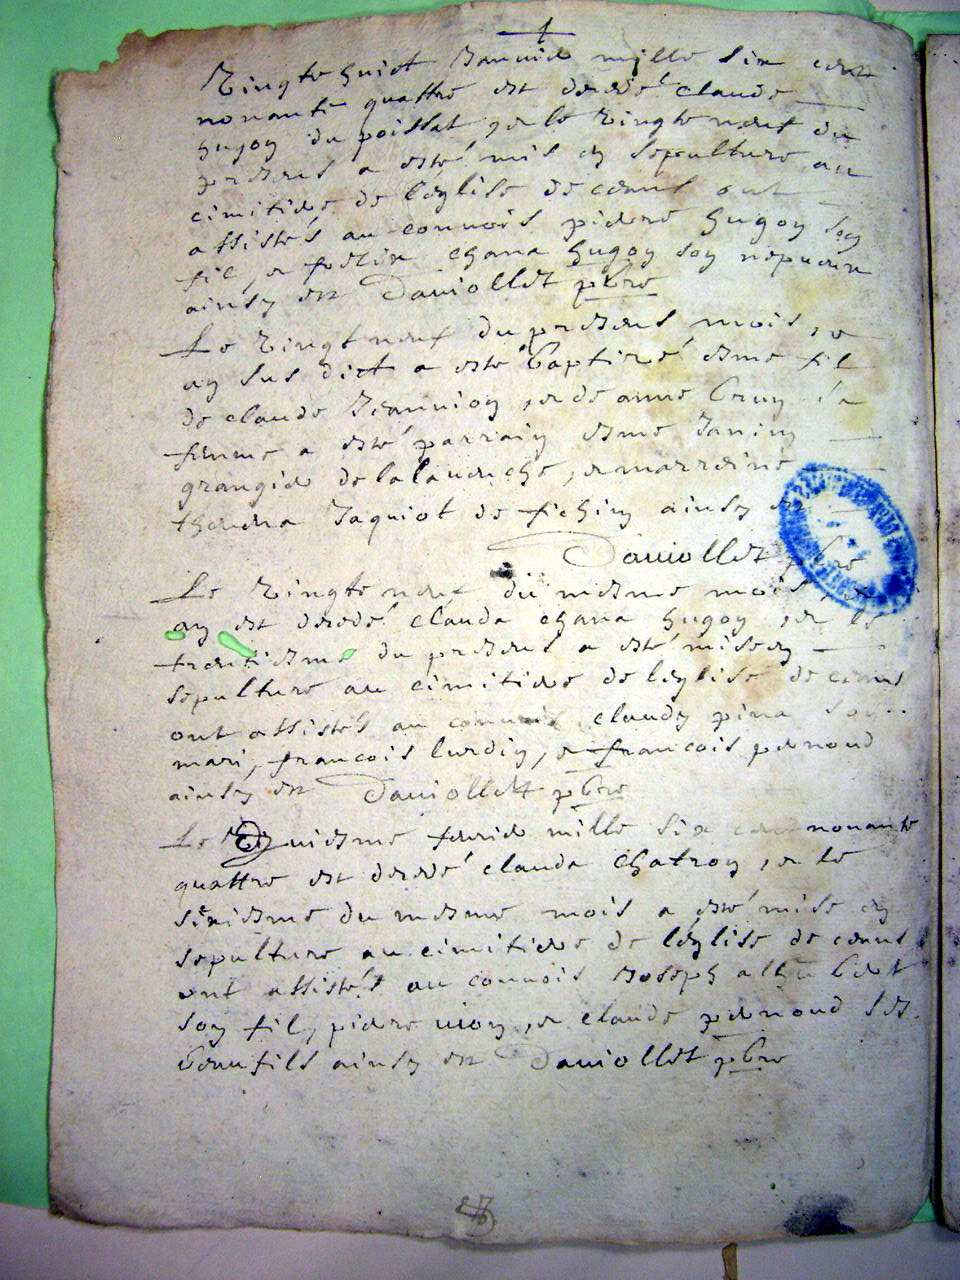 Vingte huict Januier mille six cent
nonante quattre est decedé claude
hugoy du poissat, & le vingte neuf du
present a esté mis en sepulture au
cimitiere de l'eglise de ceens ont
assistés au conuois pierre hugoy soy
fil, & chana hugoy soy
ainsy est Dauiollet pbre
Le vingt neuf du present mois, &
an sus dict a esté baptizé esme fil
de claude Jeannioy, & de anne la
femme a esté parrain esme Janin
grangier de la, & marreine
Jaquiot de ainsy est
Dauiollet pbre
Le vingte neuf du mesme mois, &
an est decedé clauda chana hugoy, & le
trentiesme du present a esté mise en
sepulture au cimitiere de l'eglise de ceens
ont assistés au conuois claude pina soy
mari, francois lurdin, & francois pernoud
ainsy est Dauiollet pbre
Le feurier mille six cent nonante
quattre est decedé clauda chatroy, & le
sixiesme du mesme mois a esté mise en
sepulture au cimitiere de l'eglise de ceens
ont assistés au conuois Joseph
soy fil, pierre uioy, & claude pernoud ses
beaufils ainsy est Dauiollet pbre